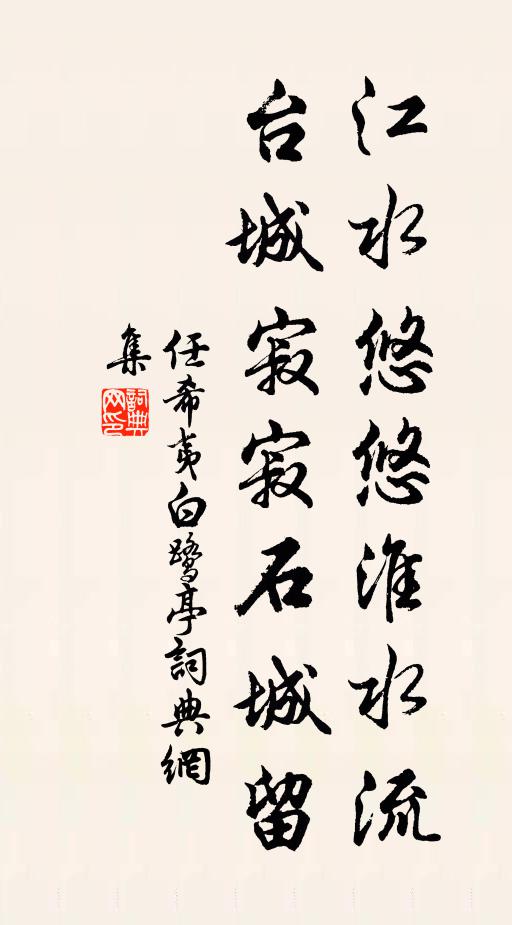 江水悠悠淮水流
台城寂寂石城留
任希夷白鹭亭詞典網
集
詞典网印